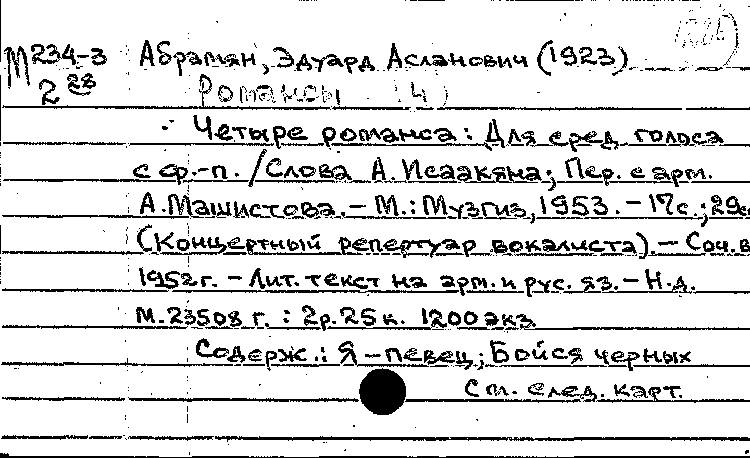 М234-3 Абрамян, Эдуард Асланович (1923)
2 28 Романсы (4)
Четыре романса: Для сред. голоса
с ф.-п. / Слова А. Исаакяна; Пер. с арм.
А. Машистова. – М.: Музгиз, 1953. – 17с.; 29с
(Концертный репертуар вокалиста). – Соч. в
1952г. – Лит. текст на арм. и рус. яз. – Н.д.
М. 23508 г. : 2р. 25к. 1200 экз
Содерж.: Я – певец; Бойся черных
См. след. карт.